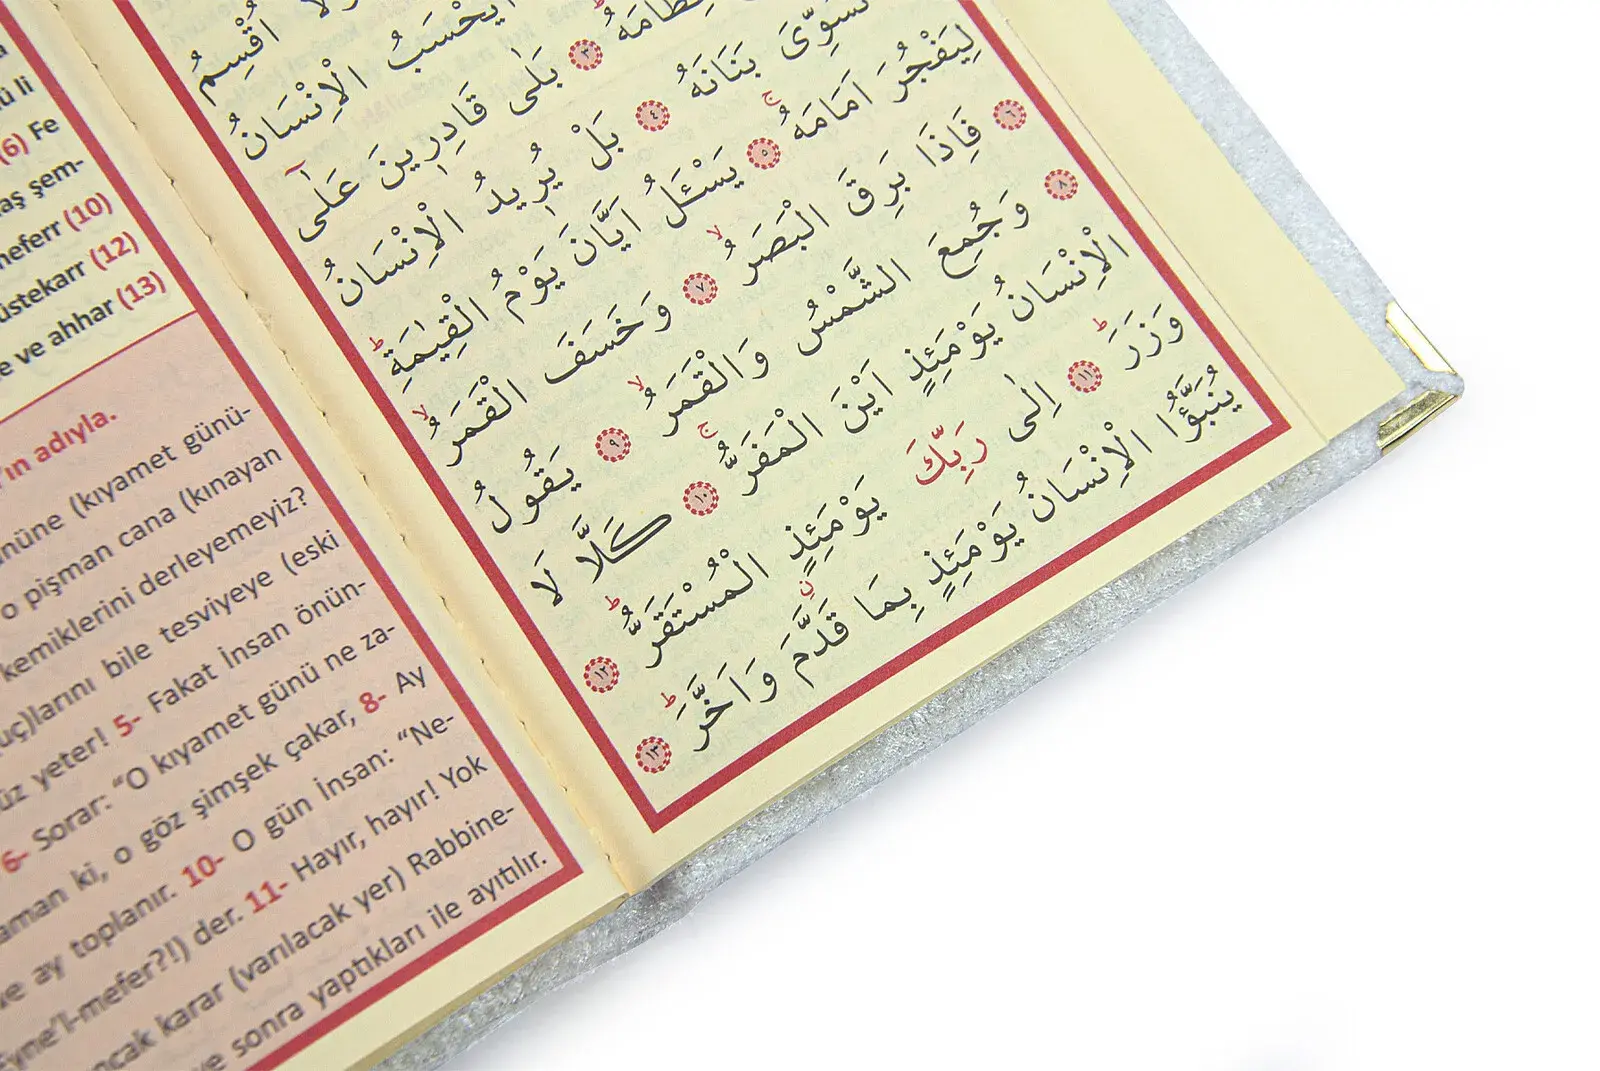 ü li
(6) Fe
aş şem-
neferr (10)
üstekarr (12)
e ve ahhar (13)
'ın adıyla.
nüne (kıyamet günü-
o pişman cana (kınayan
kemiklerini derleyemeyiz?
uç)larını bile tesviyeye (eski
üz yeter! 5- Fakat İnsan önün-
6- Sorar: “O kıyamet günü ne za-
aman ki, o göz şimşek çakar, 8- Ay
ve ay toplanır. 10- O gün İnsan: “Ne-
Eyne'l-mefer?!) der. 11- Hayır, hayır! Yok
ncak karar (varılacak yer) Rabbine-
ve sonra yaptıkları ile ayıtılır.
اُقْسِمُ
اَيَحْسَبُ الْاِنْسَانُ
عِظَامَهُ ٣ بَلٰى قَادِرٖينَ عَلٰٓى
نُسَوِّىَ بَنَانَهُ ٤ بَلْ يُرٖيدُ الْاِنْسَانُ
لِيَفْجُرَ اَمَامَهُ ۚ ٥ يَسْـَٔلُ اَيَّانَ يَوْمُ الْقِيٰمَةِ ؕ
٦ فَاِذَا بَرِقَ الْبَصَرُ ۙ ٧ وَخَسَفَ الْقَمَرُ ۙ
٨ وَجُمِعَ الشَّمْسُ وَالْقَمَرُ ۙ ٩ يَقُولُ
الْاِنْسَانُ يَوْمَئِذٍ اَيْنَ الْمَفَرُّ ۚ ١٠ كَلَّا لَا
وَزَرَ ؕ ١١ اِلٰى رَبِّكَ يَوْمَئِذٍ الْمُسْتَقَرُّ ؕ ١٢
يُنَبَّؤُا الْاِنْسَانُ يَوْمَئِذٍ بِمَا قَدَّمَ وَاَخَّرَ ؕ ١٣